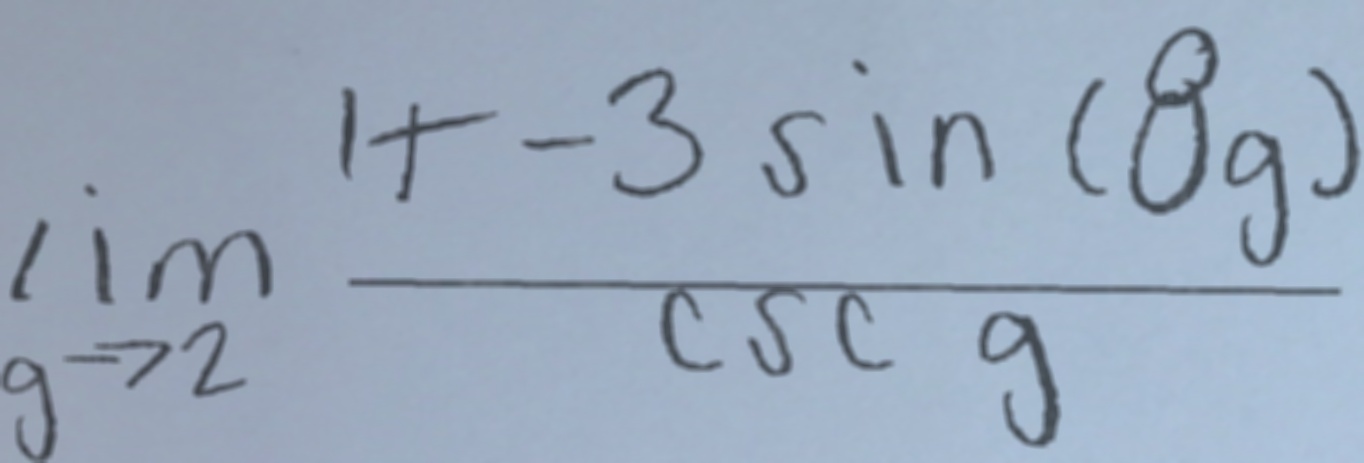 lim g→2 (1 + -3 sin (8g)) / (csc g)